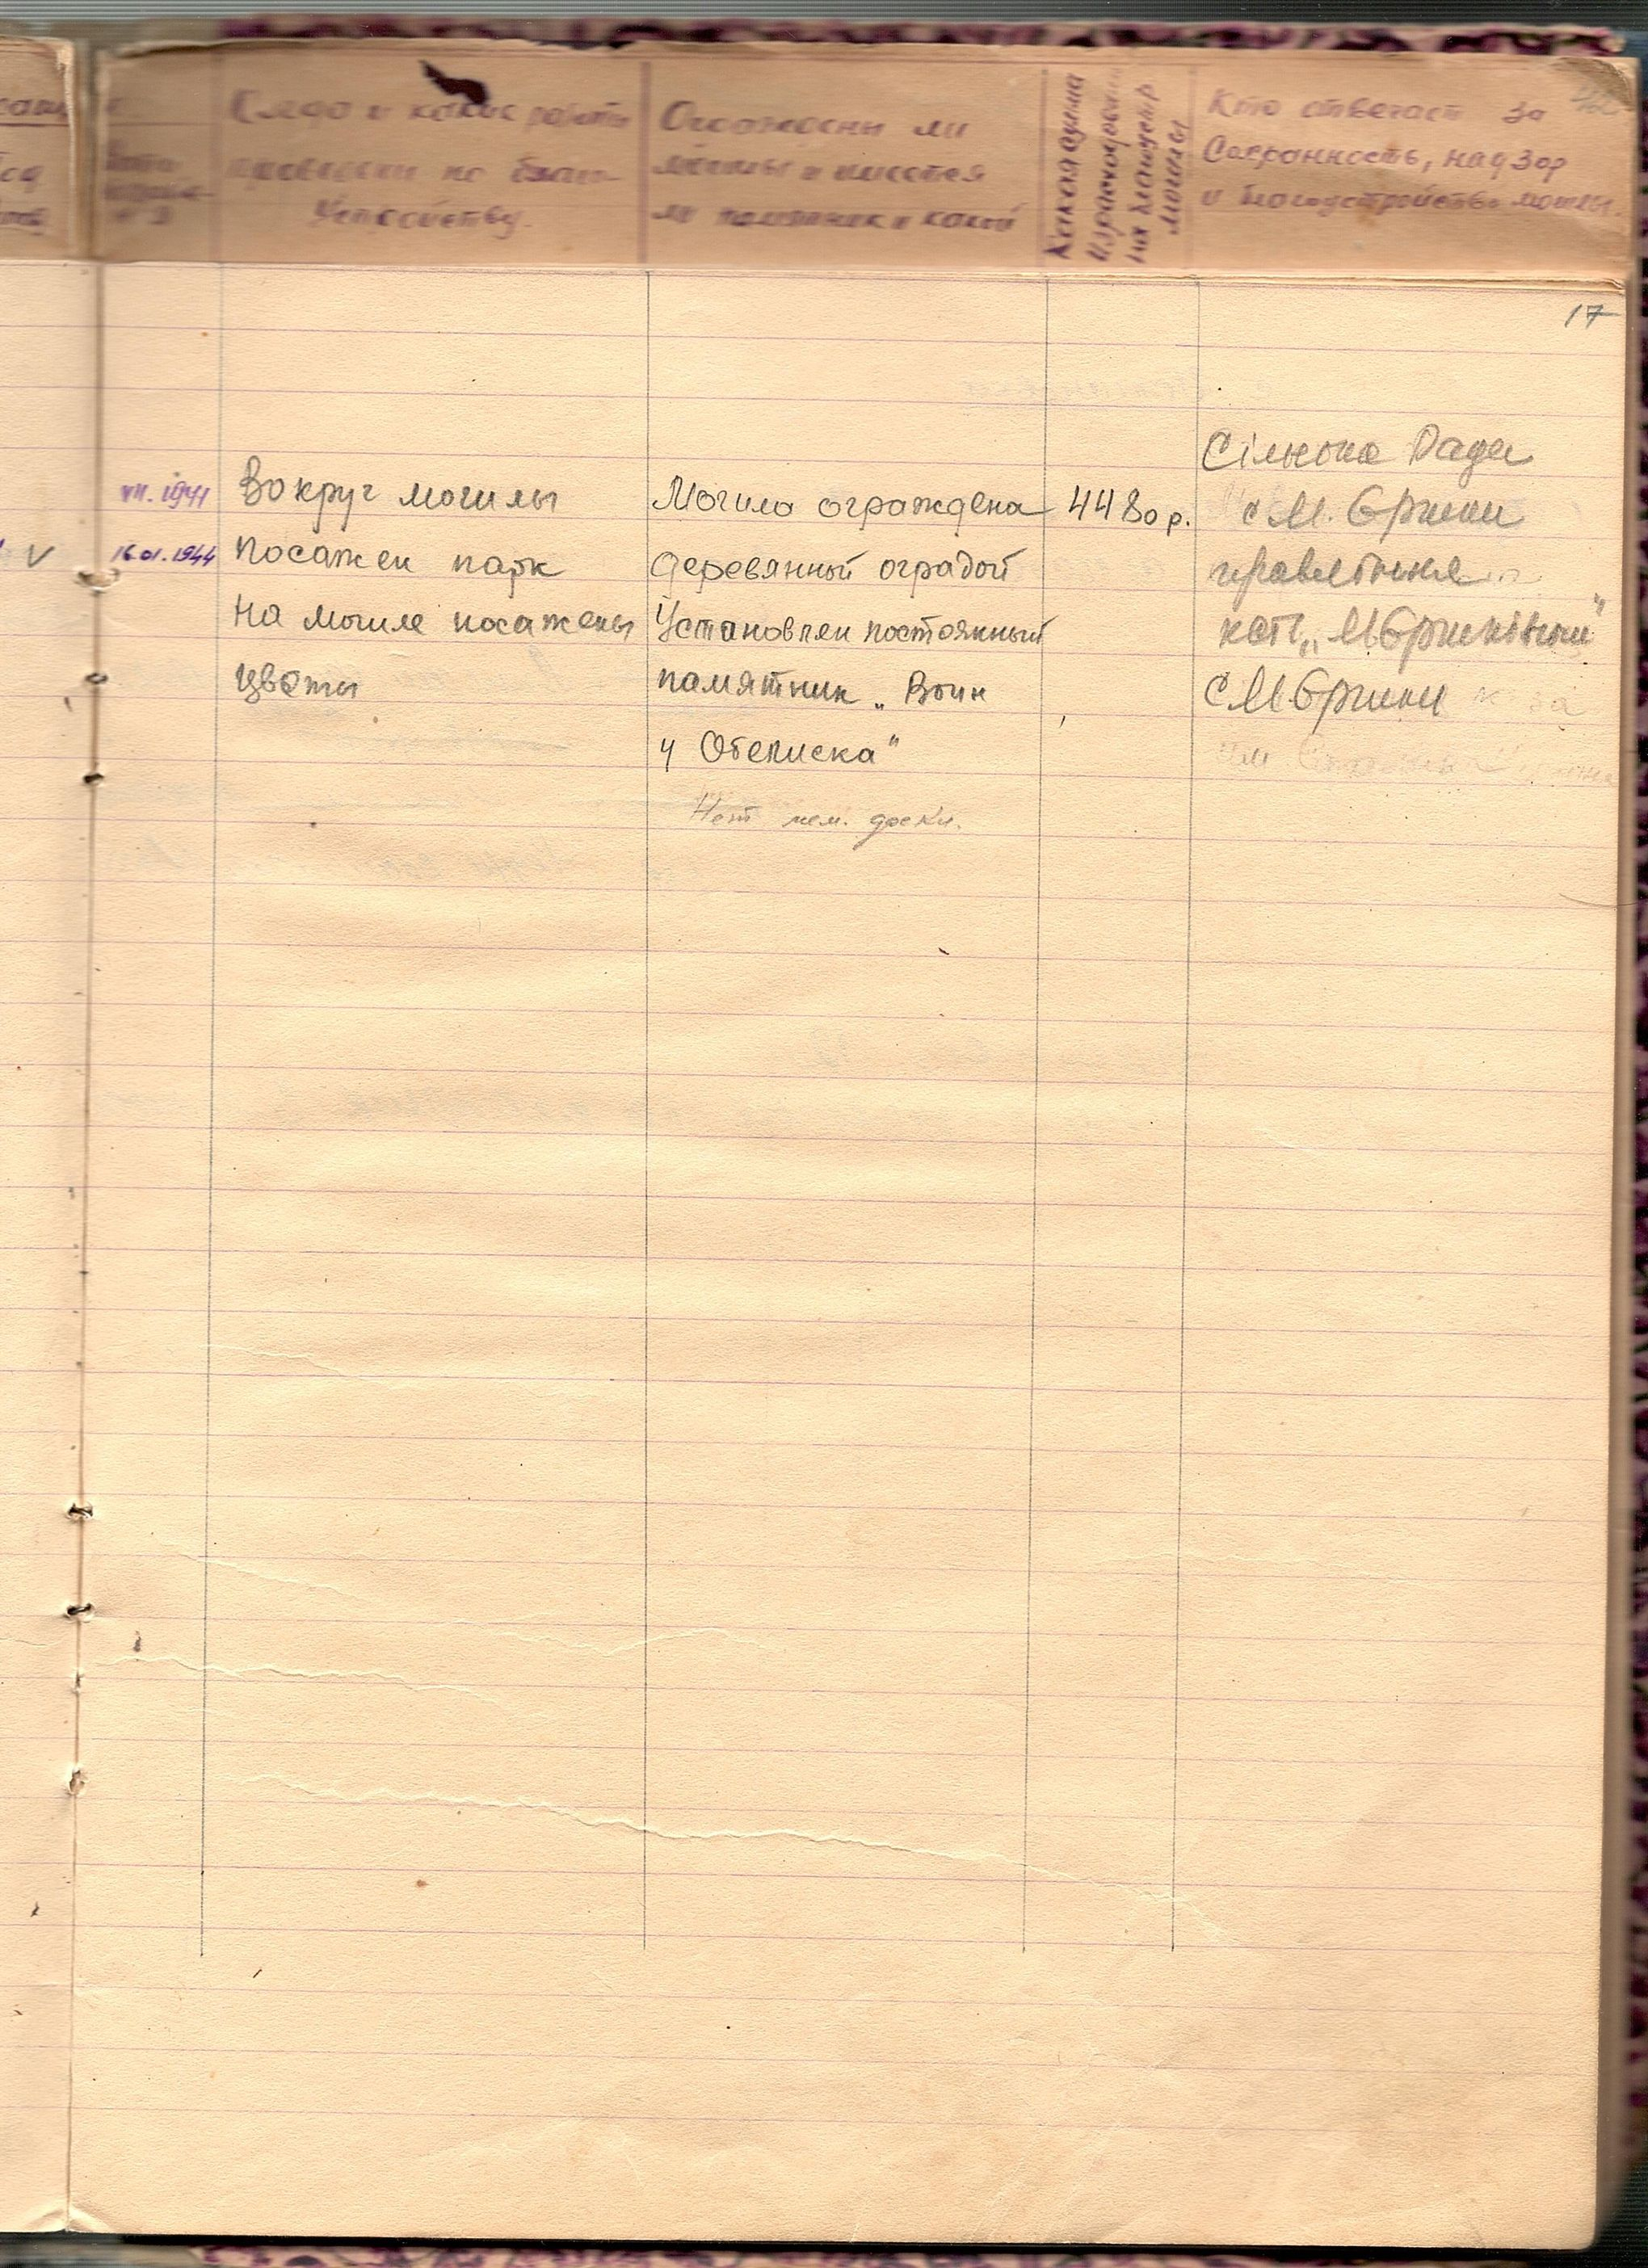 Когда и какие работы
проведены по благо-
устройству.
Ограждены ли
могилы и имеется
ли памятник и какой
Какая сумма
израсходована
на благоустр
могилы
Кто отвечает за
Сохранность, надзор
и благоустройство могилы.
17
VII. 1941
16.01.1944
V
Вокруг могилы
посажен парк
На могиле посажены
цветы
Могила ограждена
деревянной оградой
Установлен постоянный
памятник „Воин
у Обелиска"
Нет мем. доски.
4480 р.
Сільська Рада
с М. Єрчики
правління
к-сп „М Єрчиківський"
с М Єрчики